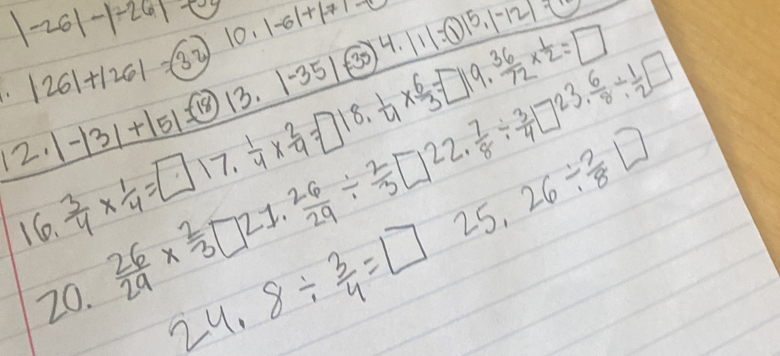 |-26|-|-26|
10. |-6|+|7|
|26|+|26| = 32
12. |-13|+|5| = 18 13. |-35| = 35 14. |1| = 1 15. |-12| =
16. 3/4 × 1/4 = □ 17. 1/4 × 2/4 = □ 18. 1/4 × 6/3 = □ 19. 36/72 × 1/2 = □
20. 26/29 × 2/3 □ 21. 26/29 ÷ 2/3 □ 22. 7/8 ÷ 3/4 □ 23. 6/8 ÷ 1/2 □
24. 8 ÷ 3/4 = □ 25. 26 ÷ 2/8 □